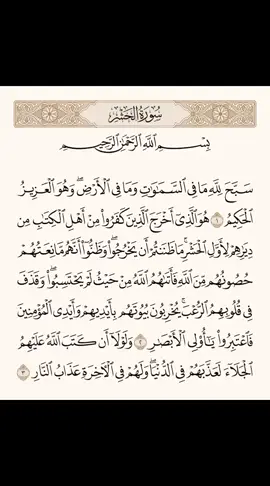 سُورَةُ الحَشْرِ
بِسْمِ اللَّهِ الرَّحْمَٰنِ الرَّحِيمِ
سَبَّحَ لِلَّهِ مَا فِي السَّمَاوَاتِ وَمَا فِي الْأَرْضِ ۖ وَهُوَ الْعَزِيزُ
الْحَكِيمُ ١ هُوَ الَّذِي أَخْرَجَ الَّذِينَ كَفَرُوا مِنْ أَهْلِ الْكِتَابِ مِن
دِيَارِهِمْ لِأَوَّلِ الْحَشْرِ ۚ مَا ظَنَنتُمْ أَن يَخْرُجُوا ۖ وَظَنُّوا أَنَّهُم مَّانِعَتُهُمْ
حُصُونُهُم مِّنَ اللَّهِ فَأَتَاهُمُ اللَّهُ مِنْ حَيْثُ لَمْ يَحْتَسِبُوا ۖ وَقَذَفَ
فِي قُلُوبِهِمُ الرُّعْبَ ۚ يُخْرِبُونَ بُيُوتَهُم بِأَيْدِيهِمْ وَأَيْدِي الْمُؤْمِنِينَ
فَاعْتَبِرُوا يَا أُولِي الْأَبْصَارِ ٢ وَلَوْلَا أَن كَتَبَ اللَّهُ عَلَيْهِمُ
الْجَلَاءَ لَعَذَّبَهُمْ فِي الدُّنْيَا ۖ وَلَهُمْ فِي الْآخِرَةِ عَذَابُ النَّارِ ٣